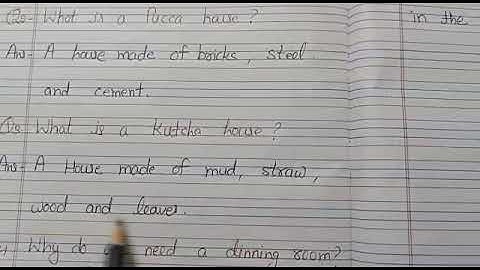 Qs- What is a Pucca house?
in the
Ans- A house made of bricks, steel
and cement.
Qs What is a Kutcha house?
Ans- A House made of mud, straw,
wood and leaves.
Why do need a dinning room?